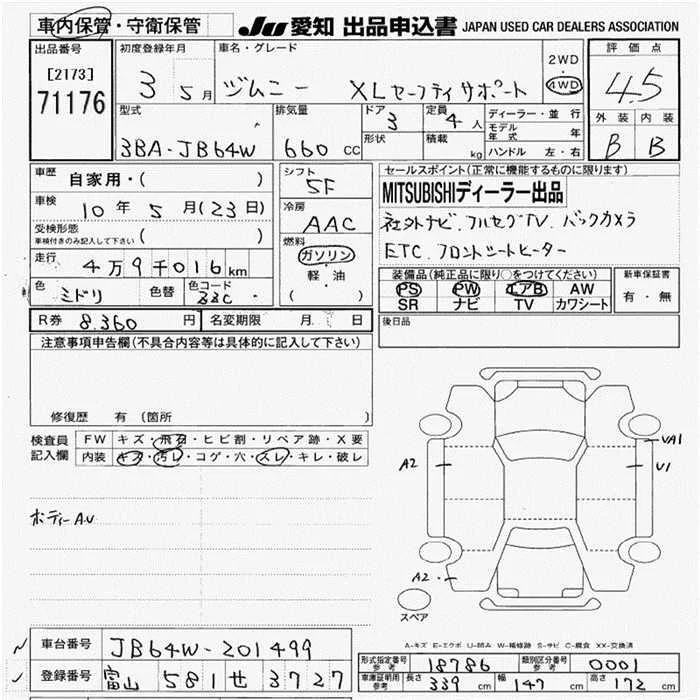 車内保管・守衛保管 JU 愛知 出品申込書 JAPAN USED CAR DEALERS ASSOCIATION
出品番号 初度登録年月 車名・グレード 2WD 評価点
[2173] 3 5月 ジムニー XLセーフティサポート 4WD 4.5
71176 型式 排気量 ドア 3 定員 4人 ディーラー・並行 外装 内装
3BA-JB64W 660CC 形状 積載 kg モデル年式 年 B B
ハンドル 左・右
車歴 自家用・( ) シフト 5F セールスポイント(正常に機能するものに限ります)
車検 10年5月(23日) 冷房 AAC MITSUBISHIディーラー出品
受検形態 ( ) 社外ナビ.フルセグTV.バックカメラ
車検付きのみ記入して下さい 燃料 ガソリン ETC.フロントシートヒーター
走行 4万9千016km 軽・油 装備品(純正品に限り○をつけてください) 新車保証書
色 ミドリ 色替 色コード 33C ( ) PS PW エアB AW 有・無
SR ナビ TV カワシート
R券 8.360円 名変期限 月 日 後日品
注意事項申告欄(不具合内容等は具体的に記入して下さい)
修復歴 有 (箇所
検査員 FW キズ・飛石・ヒビ割・リペア跡・X要
記入欄 内装 キズ・汚レ・コゲ・穴・スレ・キレ・破レ
VA1
A2 U1
ボディーA.U
A2
スペア
A-キズ E-エクボ U-凹み W-補修跡 S-サビ C-腐食 XX-交換済
車台番号 JB64W-201499
登録番号 富山 581 せ 3727
形式指定番号 参考 18786 類別区分番号 参考 0001
車庫証明用 参考 長さ 339cm 幅 147cm 高さ 172cm